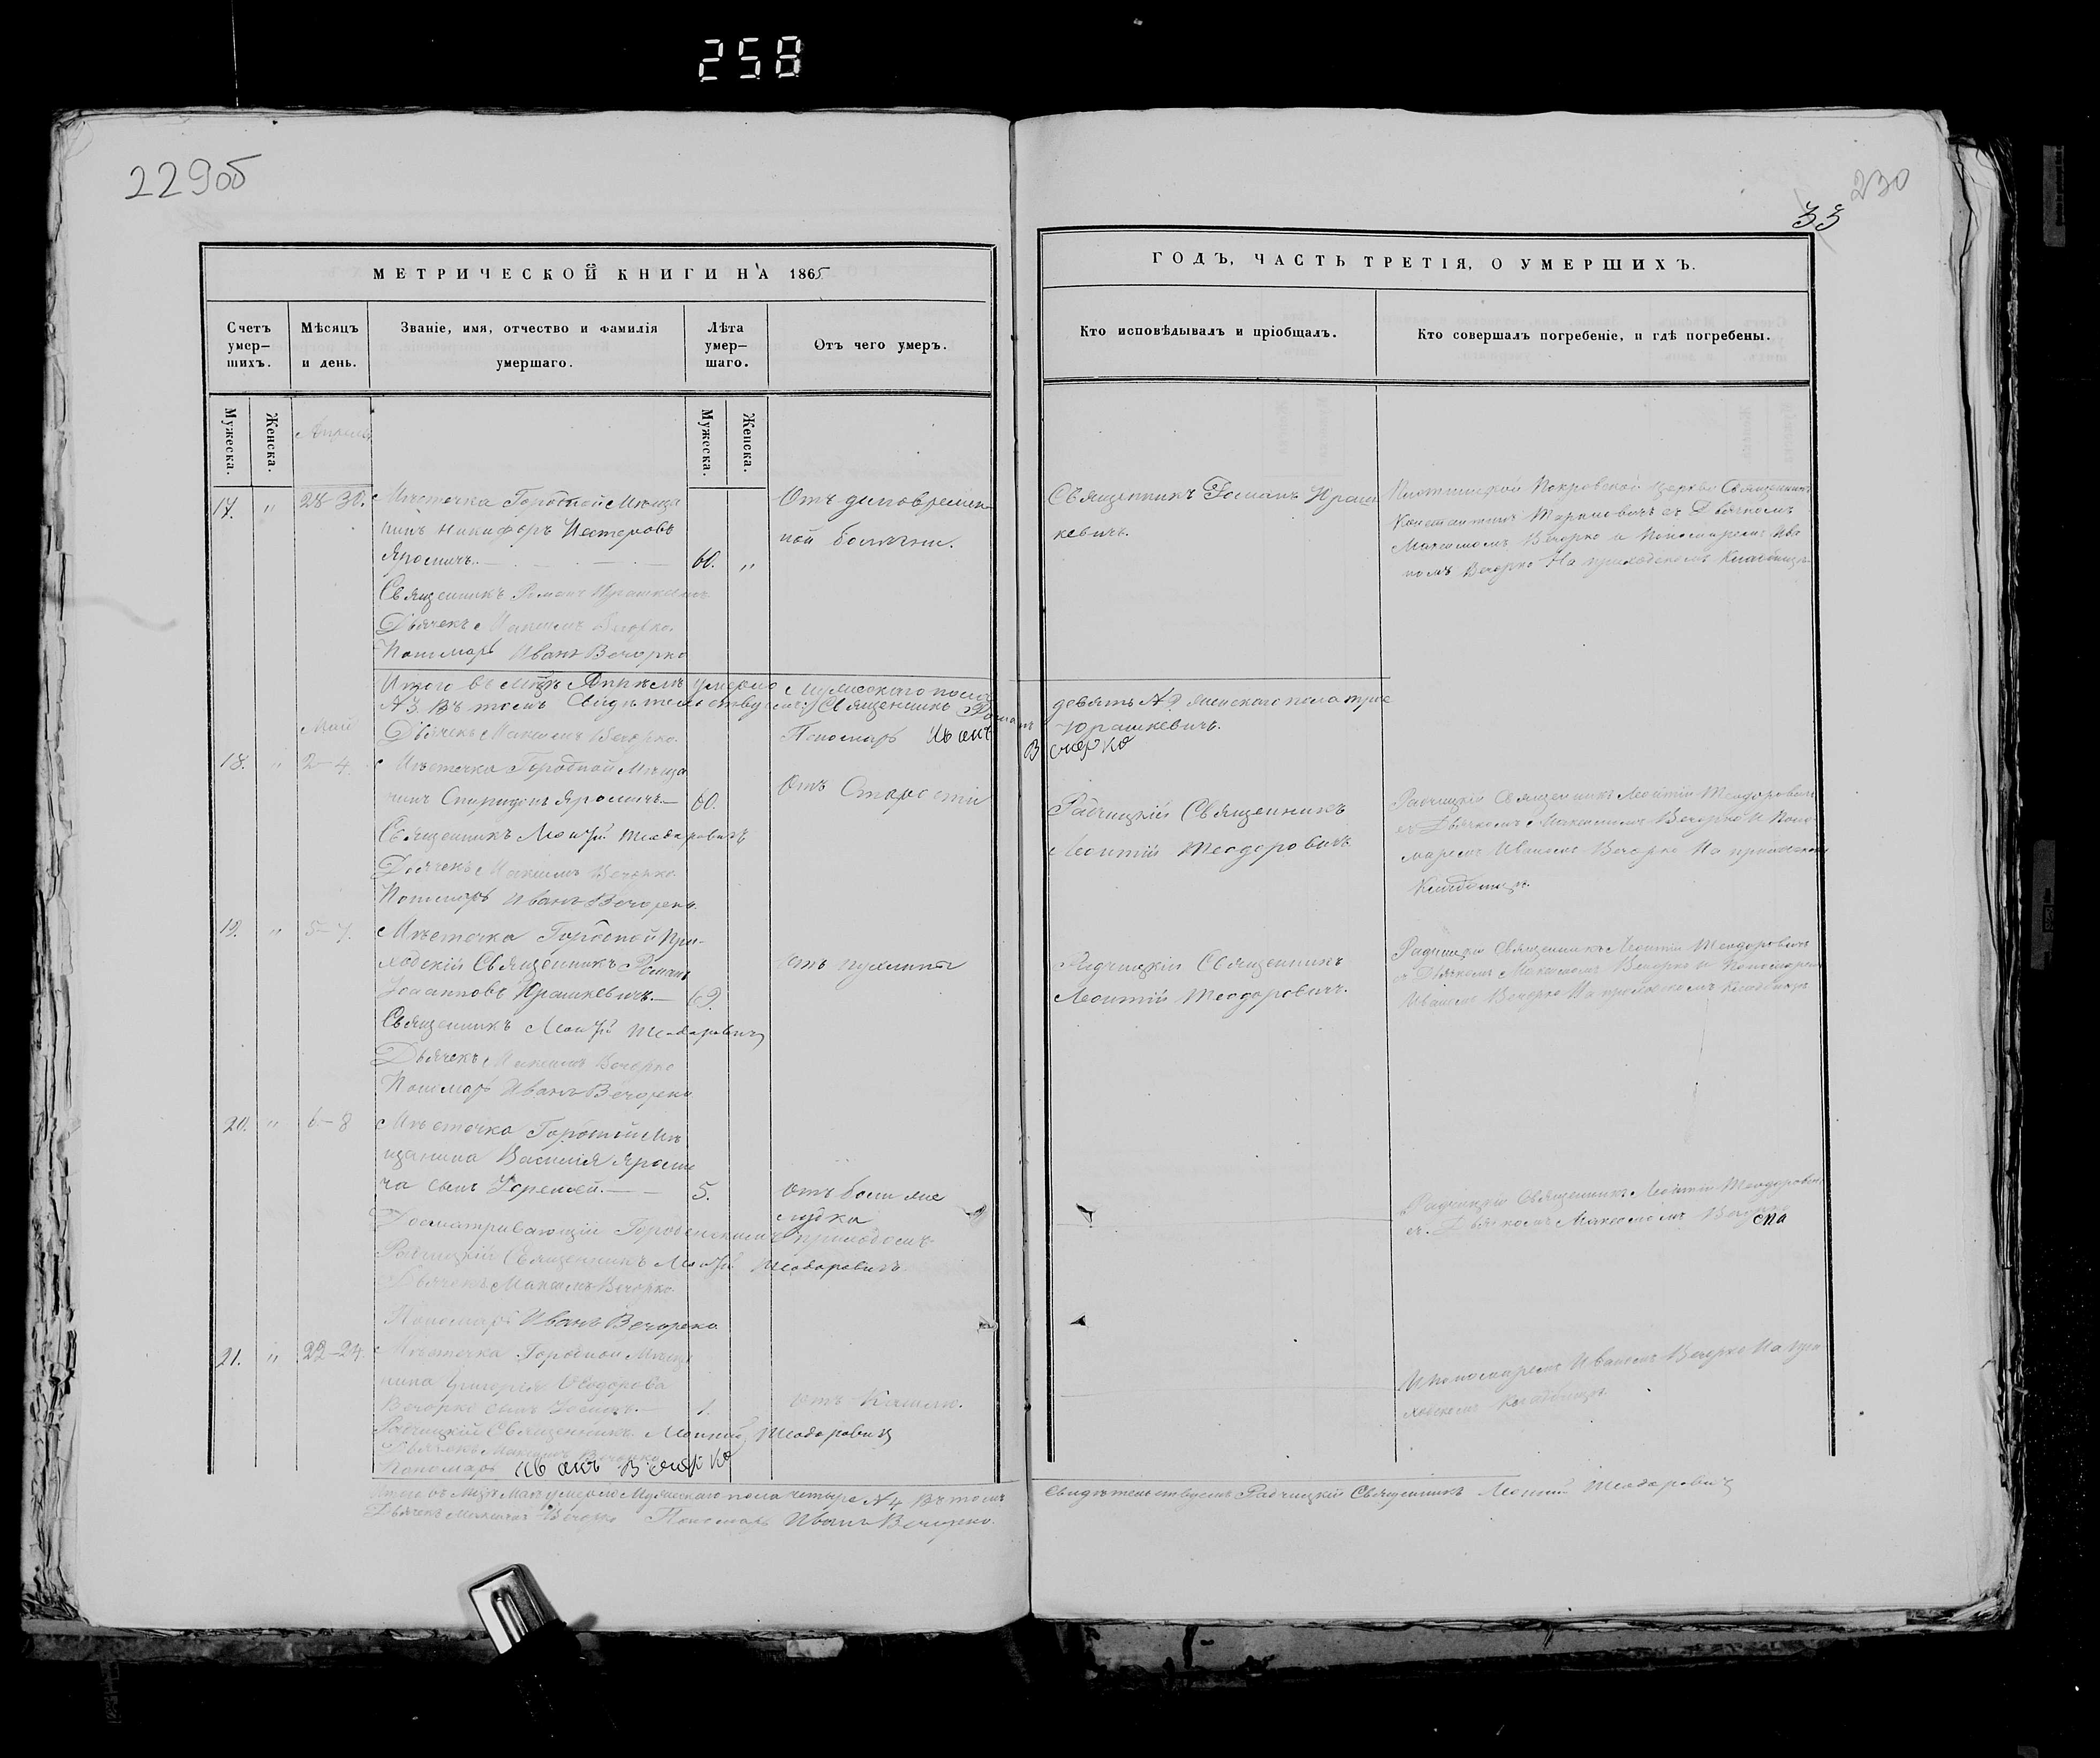 258
229об
230
33
МЕТРИЧЕСКОЙ КНИГИ НА 1865
ГОДЪ, ЧАСТЬ ТРЕТІЯ, О УМЕРШИХЪ.
Счетъ умер-
шихъ.
Мѣсяцъ
и день.
Званіе, имя, отчество и фамилія
умершаго.
Лѣта
умер-
шаго.
Отъ чего умеръ.
Кто исповѣдывалъ и пріобщалъ.
Кто совершалъ погребеніе, и гдѣ погребены.
Мужеска.
Женска.
Мужеска.
Женска.
Апрель
17. " 28-30. Мѣстечка Городной Мѣща
нинъ Никифоръ Нестеровъ
Яромичъ. 60. "
Отъ
ной болѣзни.
Священникъ Романъ Юраш
кевичъ.
Покровской Церкви Священникъ
Константинъ съ Дьячкомъ
Максимомъ Вечорко и Пономаремъ Ива
номъ Вечорко На приходскомъ Кладбищѣ
Священникъ Романъ Юрашкевичъ
Дьячекъ Максимъ Вечорко.
Пономарь Иванъ Вечорко
Итого въ мцѣ Апрѣлѣ умерло мужескаго пола
девять №9 женскаго пола три
№3 Въ томъ Свидѣтельствуемъ: Священникъ Романъ
Юрашкевичъ.
Дьячекъ Максимъ Вечорко. Пономарь Иванъ Вечорко
Май
18. " 2-4. Мѣстечка Городной Мѣща
нинъ Спиридонъ Яромичъ.— 60.
Отъ Старости
Радчицкій Священникъ
Леонтій Теодоровичъ
Радчицкій Священникъ Леонтій Теодоровичъ
съ Дьячкомъ Максимомъ Вечорко и Поно-
маремъ Иваномъ Вечорко На приходскомъ
Кладбищѣ.
Священникъ Леонтій Теодоровичъ
Дьячекъ Максимъ Вечорко
Пономарь Иванъ Вечорко.
19. " 5-7. Мѣстечка Городной При-
ходскій Священникъ Романъ
Іоанновъ Юрашкевичъ.— 69.
Отъ
Радчицкій Священникъ
Леонтій Теодоровичъ.
Радчицкій Священникъ Леонтій Теодоровичъ
съ Дьячкомъ Максимомъ Вечорко и Пономаремъ
Иваномъ Вечорко На приходскомъ Кладбищѣ
Священникъ Леонтій Теодоровичъ
Дьячекъ Максимъ Вечорко
Пономарь Иванъ Вечорко
20. " 6-8 Мѣстечка Городной Мѣ
щанина Василія Яроми
ча сынъ Іеремей.— 5.
Отъ боли же
лудка
Радчицкій Священникъ Леонтій Теодоровичъ
съ Дьячкомъ Максимомъ Вечорко
Досматривающій Городенскимъ приходомъ
Радчицкій Священникъ Леонтій Теодоровичъ
Дьячекъ Максимъ Вечорко.
Пономарь Иванъ Вечорко
21. " 22-24. Мѣстечка Городной Мѣща
нина Григорія Ѳеодорова
Вечорко сынъ Іосифъ.— 1.
Отъ Кашлю.
И пономаремъ Иваномъ Вечорко На при
ходскомъ Кладбищѣ.
Радчицкій Священникъ Леонтій Теодоровичъ
Дьячокъ Максимъ Вечорко
Пономарь Иванъ Вечорко
Итого въ мцѣ Маѣ умерло Мужескаго пола четыре №4 Въ томъ
Свидѣтельствуемъ Радчицкій Священникъ Леонтій Теодоровичъ
Дьячекъ Максимъ Вечорко Пономарь Иванъ Вечорко.